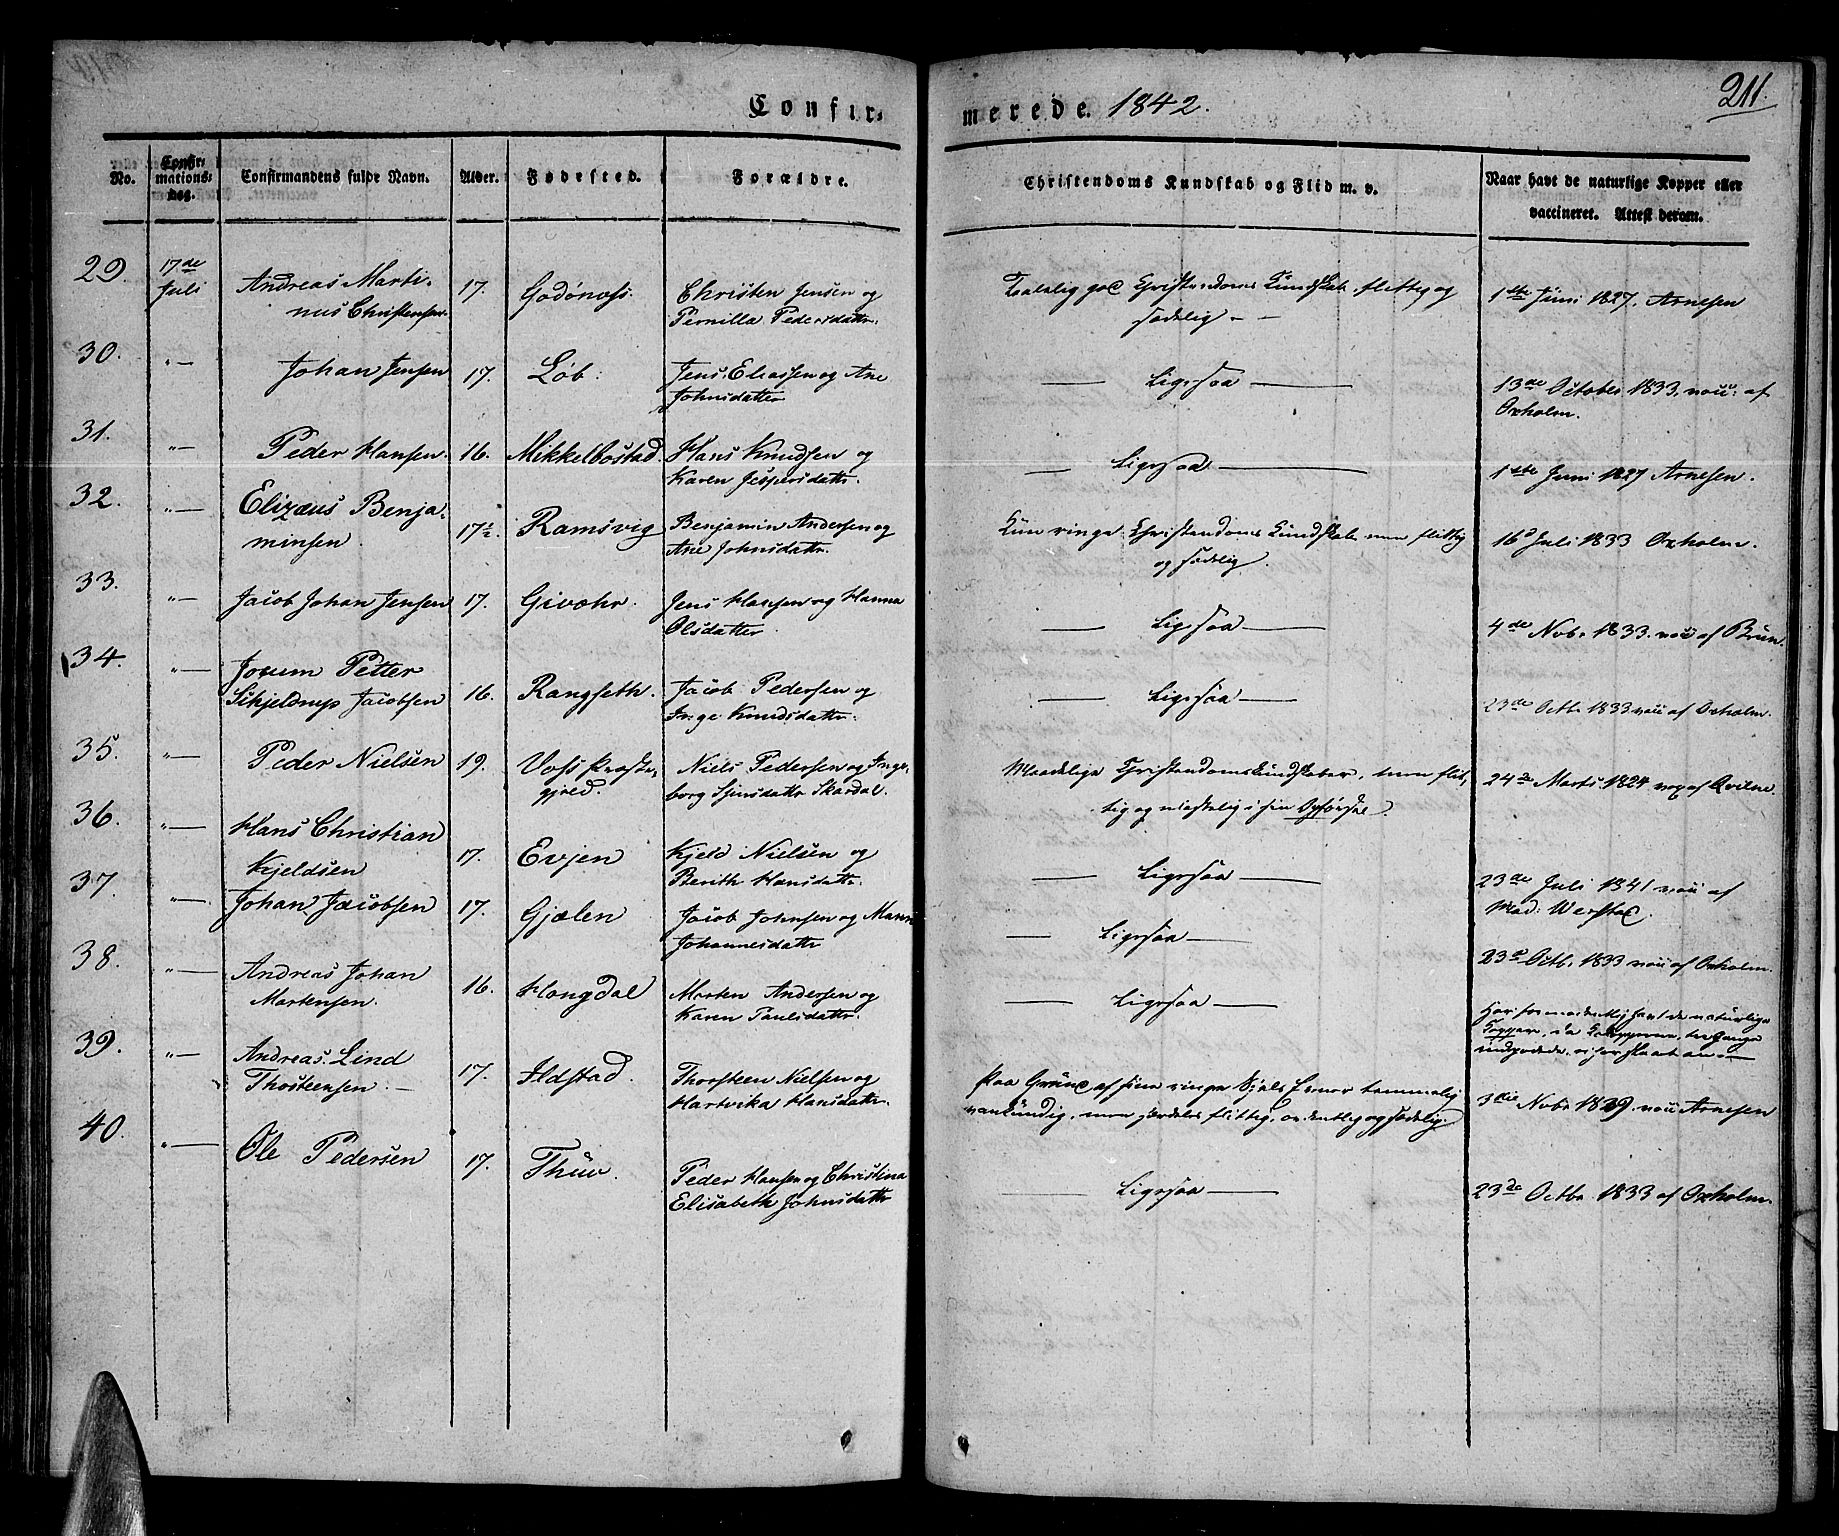 211.
Confir- merede. 1842.
No. Confirmationsdag. Confirmandens fulde Navn. Alder. Fødested. Forældre. Christendoms Kundskab og Flid m. v. Naar havt de naturlige Kopper eller vaccineret. Attest derom.
29. 17de Juli Andreas Marti-
nus Christensen. 17. Godønæss. Christen Jensen og
Pernilla Pedersdattr. Christendoms Kundskab, flittig og
sædelig 1ste Juni 1827. Arnesen
30. " Johan Jensen 17. Løb. Jens Eliassen og Ane
Johnsdatter Ligesaa 13de October 1833. af
Oxholm.
31. " Peder Hansen. 16. Mikkelbostad. Hans Knudsen og
Karen Jespersdattr. Ligesaa 1ste Juni 1827 Arnesen.
32. " Elizæus Benja-
minsen. 17½ Ramsvig Benjamin Andersen og
Ane Johnsdattr. Kun ringe Christendoms Kundskab men flittig
og sædelig. 16d Juli 1833 Oxholm.
33. " Jacob Johan Jensen 17. Givær. Jens Hansen og Hanna
Olsdatter. Ligesaa 4de Novb. 1833. af Brun.
34. " Jorum Petter
Schjeldrup Jacobsen 16. Rangseth. Jacob Pedersen og
Inge Knudsdattr. Ligesaa 23de Octb. 1833 af Oxholm.
35. " Peder Nielsen 19. Voss Præste-
gjeld. Niels Pedersen og Inge-
borg Skardal. Maadelige Christendomskundskaber, men flit-
tig og i sin Opførsel. 24de Marts 1824 af
36. " Hans Christian
Kjeldsen 17. Evjen Kjeld Nielsen og
Berith Hansdattr. Ligesaa 23de Juli 1841 af
Mad:
37. " Johan Jacobsen 17. Gjælen Jacob Johnsen og
Johannesdattr Ligesaa 23d Octb. 1833 af Oxholm.
38. " Andreas Johan
Martensen. 16. Hongdal Morten Andersen og
Karen Paulsdattr. Ligesaa Har formodentlig havt de naturlige
Kopper, da Kokopperne tre Gange
indpodede, ei har slaaet an.
39. " Andreas Lind
Thosteensen. 17. Ildstad. Thorsteen Nielsen og
Hartvika Hansdattr. Paa Grund af sine ringe Sjels Evner temmelig
vankundig, men særdeles flittig, ordentlig og sædelig. 3die Novbr Arnesen
40. " Ole Pedersen 17. Thuv. Peder Hansen og Christina
Elisabeth Johnsdattr Ligesaa 23de Octbr 1833 af Oxholm.